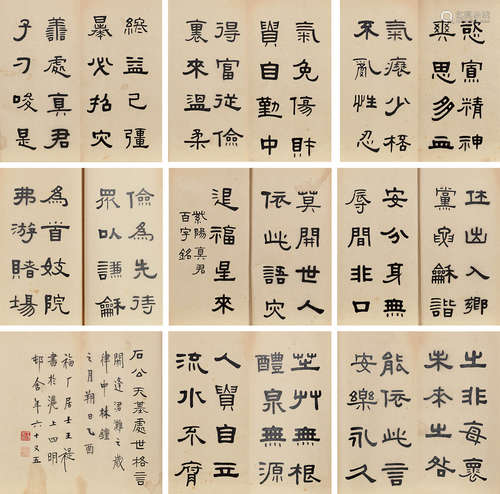 慾寡精神
爽思多血
氣衰少桮
不亂性忍
氣免傷財
貴自勤中
得富從儉
裏來溫柔
終益己彊
暴必招灾
善處真君
子刁唆是
出入鄉
黨要龢諧
安分身無
辱閒非口
莫開世人
依此語灾
退福星來
紫陽真君
百字銘
儉為先待
眾以謙龢
為首妓院
弗游賭場
非每
未來生咎
能依此言
安樂永久
芝艸無根
醴泉無源
人貴自立
流水不腐
石公天基處世格言
閼逢涒灘之歲
律中林鐘
之月朔日乙酉
福厂居士王禔
書於滬上四明
邨舍年六十又五